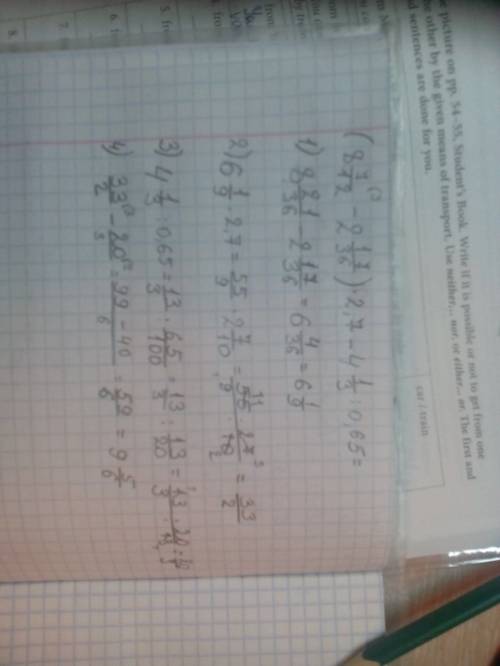 e picture on pp. 54–55, Student's Book. Write if it is possible or not to get from one
he other by the given means of transport. Use neither... nor, or either... or. The first and
d sentences are done for you.
car / train
5. fro
6. fr
7.
8.
(8 7/12 - 2 17/36) · 2,7 - 4 1/3 : 0,65 =
1) 8 21/36 - 2 17/36 = 6 4/36 = 6 1/9
2) 6 1/9 · 2,7 = 55/9 · 2 7/10 = 55/9 · 27/10 = 33/2
3) 4 1/3 : 0,65 = 13/3 : 65/100 = 13/3 : 13/20 = 13/3 · 20/13 = 20/3
4) 33/2 - 20/3 = 99 - 40/6 = 59/6 = 9 5/6